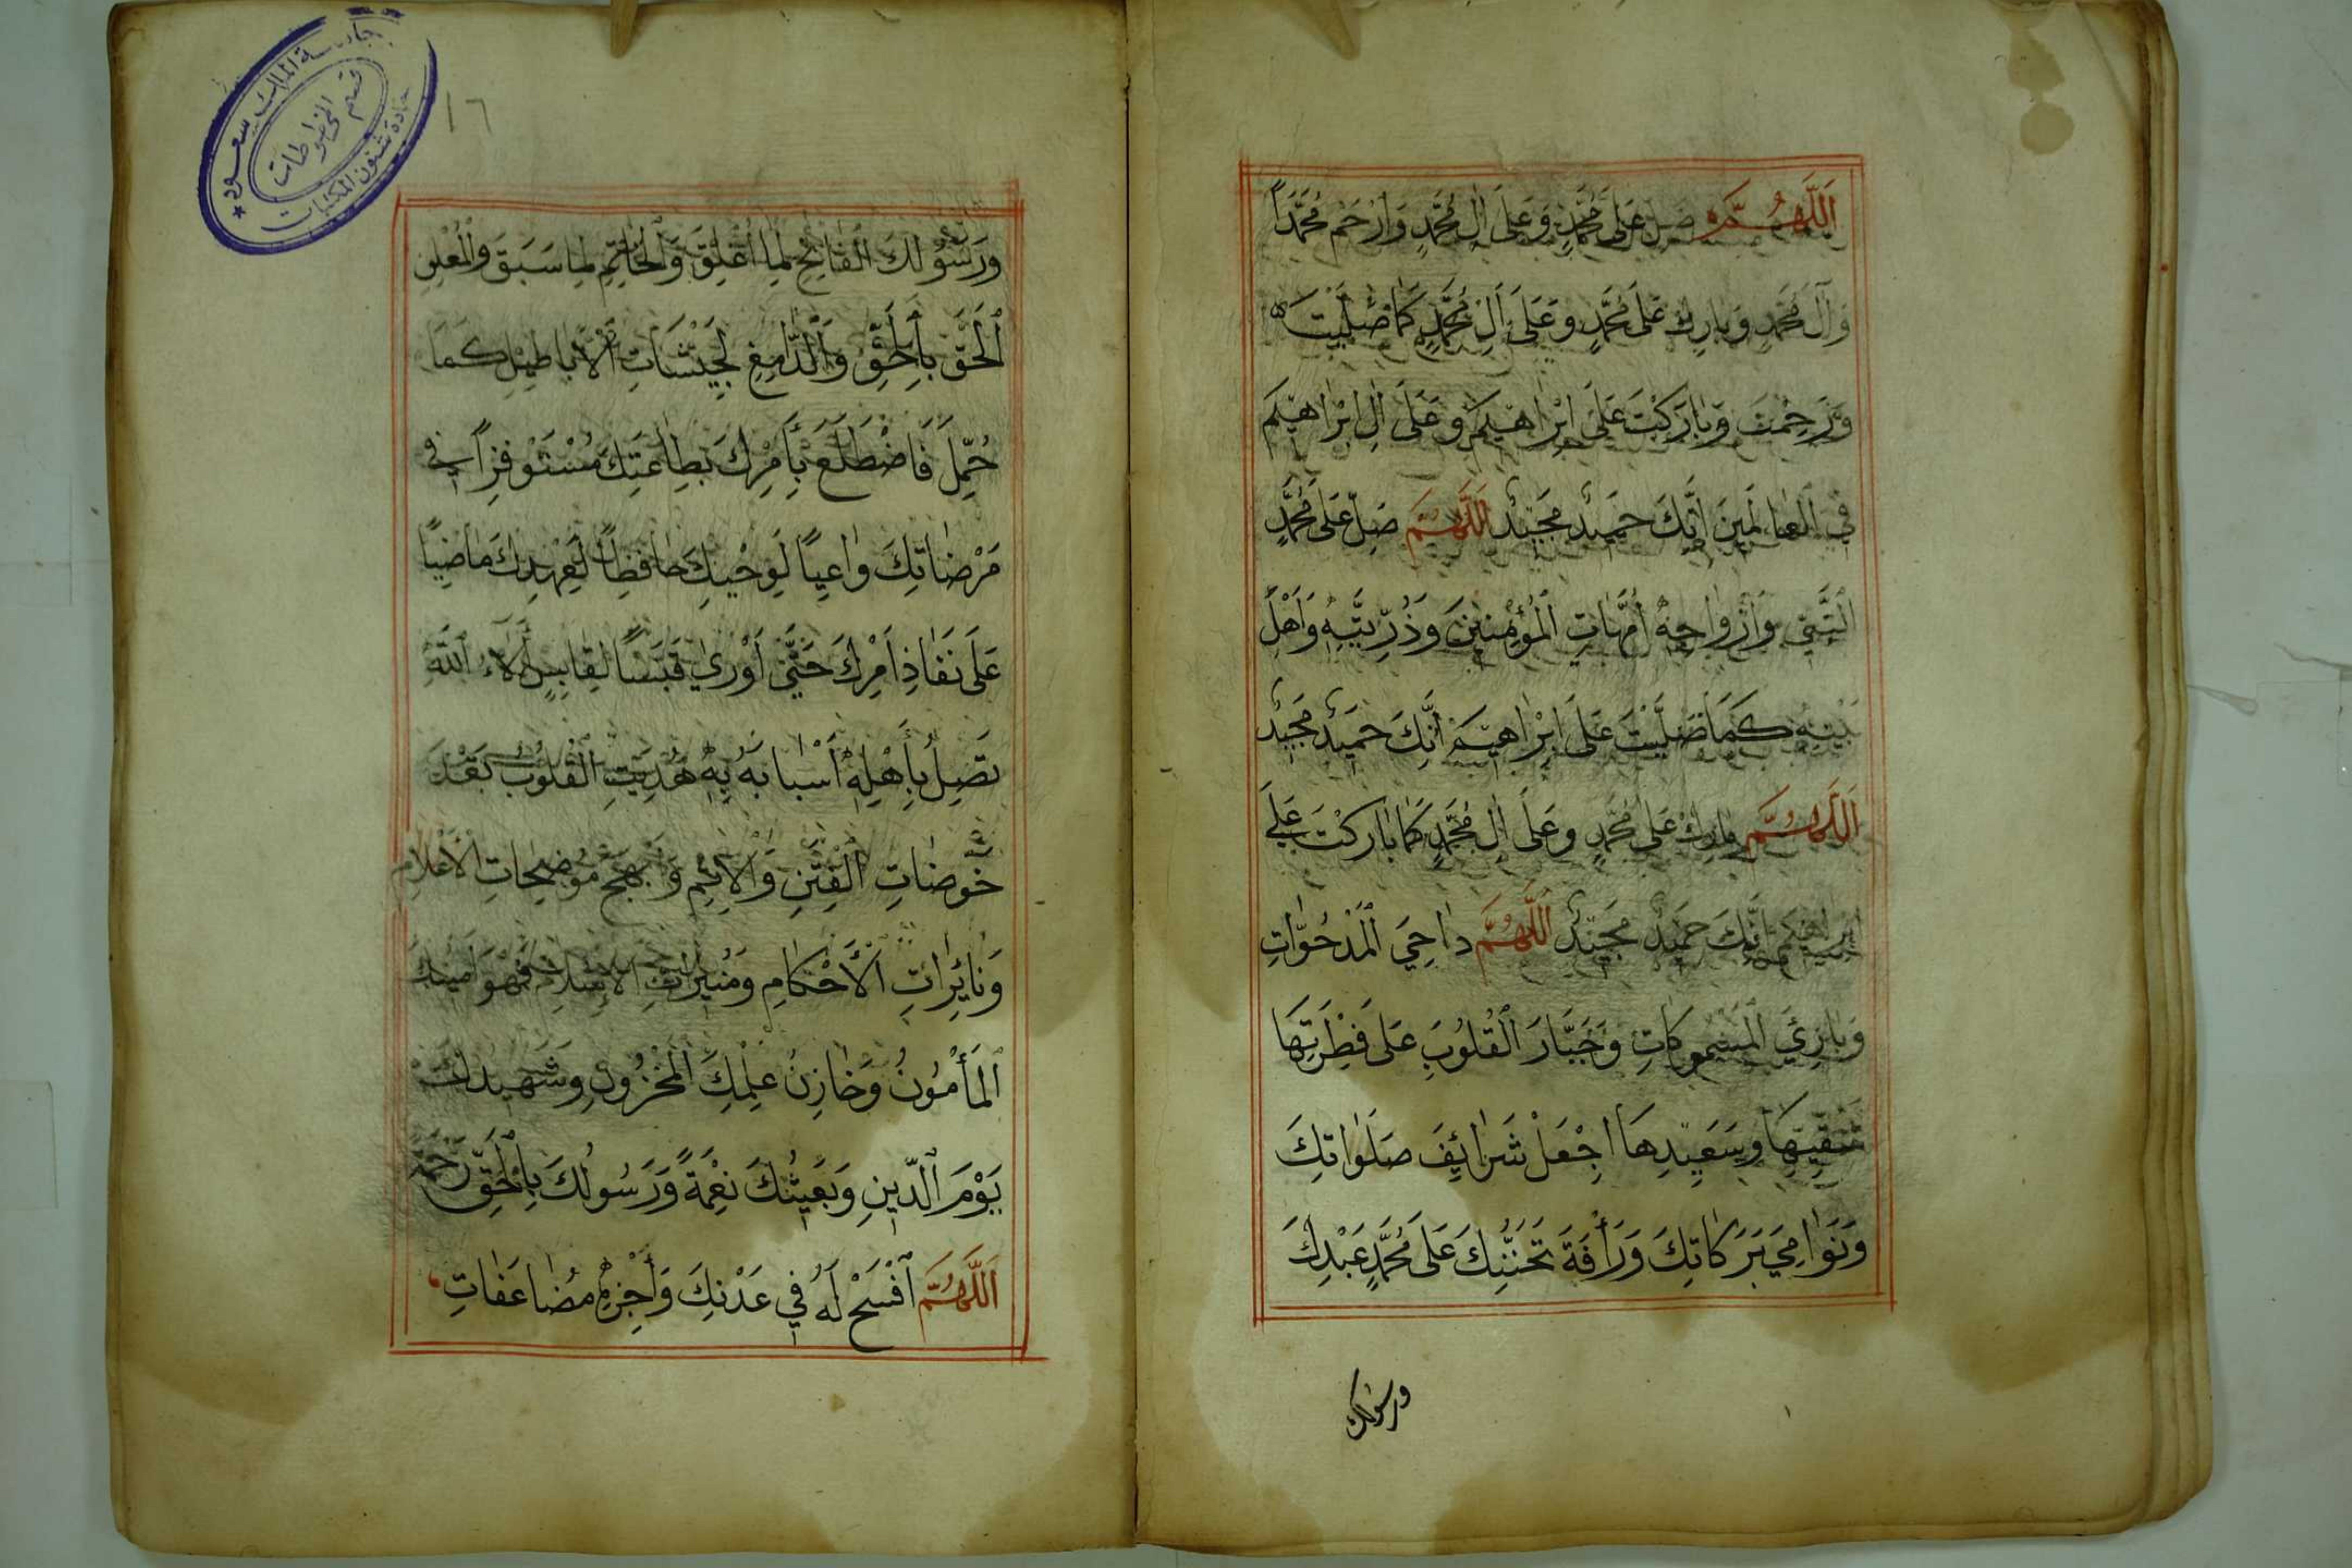 اَللّٰهُمَّ صَلِّ عَلَى مُحَمَّدٍ وَعَلَى اٰلِ مُحَمَّدٍ وَارْحَمْ مُحَمَّدًا
وَآلَ مُحَمَّدٍ وَبَارِكْ عَلَى مُحَمَّدٍ وَعَلَى اٰلِ مُحَمَّدٍ كَمَا صَلَّيْتَ
وَرَحِمْتَ وَبَارَكْتَ عَلَى اِبْرَاهِيمَ وَعَلَى اٰلِ اِبْرَاهِيمَ
فِي الْعَالَمِينَ اِنَّكَ حَمِيدٌ مَجِيدٌ اَللّٰهُمَّ صَلِّ عَلَى مُحَمَّدٍ
النَّبِيِّ وَاَزْوَاجِهِ اُمَّهَاتِ الْمُؤْمِنِينَ وَذُرِّيَّتِهِ وَاَهْلِ
بَيْتِهِ كَمَا صَلَّيْتَ عَلَى اِبْرَاهِيمَ اِنَّكَ حَمِيدٌ مَجِيدٌ
اَللّٰهُمَّ بَارِكْ عَلَى مُحَمَّدٍ وَعَلَى اٰلِ مُحَمَّدٍ كَمَا بَارَكْتَ عَلَى
اِبْرَاهِيمَ اِنَّكَ حَمِيدٌ مَجِيدٌ اَللّٰهُمَّ دَاحِيَ الْمَدْحُوَّاتِ
وَبَارِئَ الْمَسْمُوكَاتِ وَجَبَّارَ الْقُلُوبِ عَلَى فِطْرَتِهَا
شَقِيِّهَا وَسَعِيدِهَا اِجْعَلْ شَرَائِفَ صَلَوَاتِكَ
وَنَوَامِيَ بَرَكَاتِكَ وَرَأْفَةَ تَحَنُّنِكَ عَلَى مُحَمَّدٍ عَبْدِكَ
ورسولك
١٦
جامعة الملك سعود
قسم المخطوطات
عمادة شئون المكتبات
وَرَسُولِكَ الْفَاتِحِ لِمَا اُغْلِقَ وَالْخَاتِمِ لِمَا سَبَقَ وَالْمُعْلِنِ
الْحَقَّ بِالْحَقِّ وَالدَّامِغِ لِجَيْشَاتِ الْاَبَاطِيلِ كَمَا
حُمِّلَ فَاضْطَلَعَ بِأَمْرِكَ بِطَاعَتِكَ مُسْتَوْفِزًا فِي
مَرْضَاتِكَ وَاعِيًا لِوَحْيِكَ حَافِظًا لِعَهْدِكَ مَاضِيًا
عَلَى نَفَاذِ اَمْرِكَ حَتَّى اَوْرٰى قَبَسًا لِقَابِسٍ اٰلَاءُ اللّٰهِ
تَصِلُ بِأَهْلِهِ اَسْبَابَهُ بِهِ هُدِيَتِ الْقُلُوبُ بَعْدَ
خَوْضَاتِ الْفِتَنِ وَالْاِثْمِ وَاَبْهَجَ مُوضِحَاتِ الْاَعْلَامِ
وَنَائِرَاتِ الْاَحْكَامِ وَمُنِيرَاتِ الْاِسْلَامِ فَهُوَ اَمِينُكَ
الْمَأْمُونُ وَخَازِنُ عِلْمِكَ الْمَخْزُونِ وَشَهِيدُكَ
يَوْمَ الدِّينِ وَبَعِيثُكَ نِعْمَةً وَرَسُولُكَ بِالْحَقِّ رَحْمَةً
اَللّٰهُمَّ افْسَحْ لَهُ فِي عَدْنِكَ وَاَجْزِهِ مُضَاعَفَاتِ